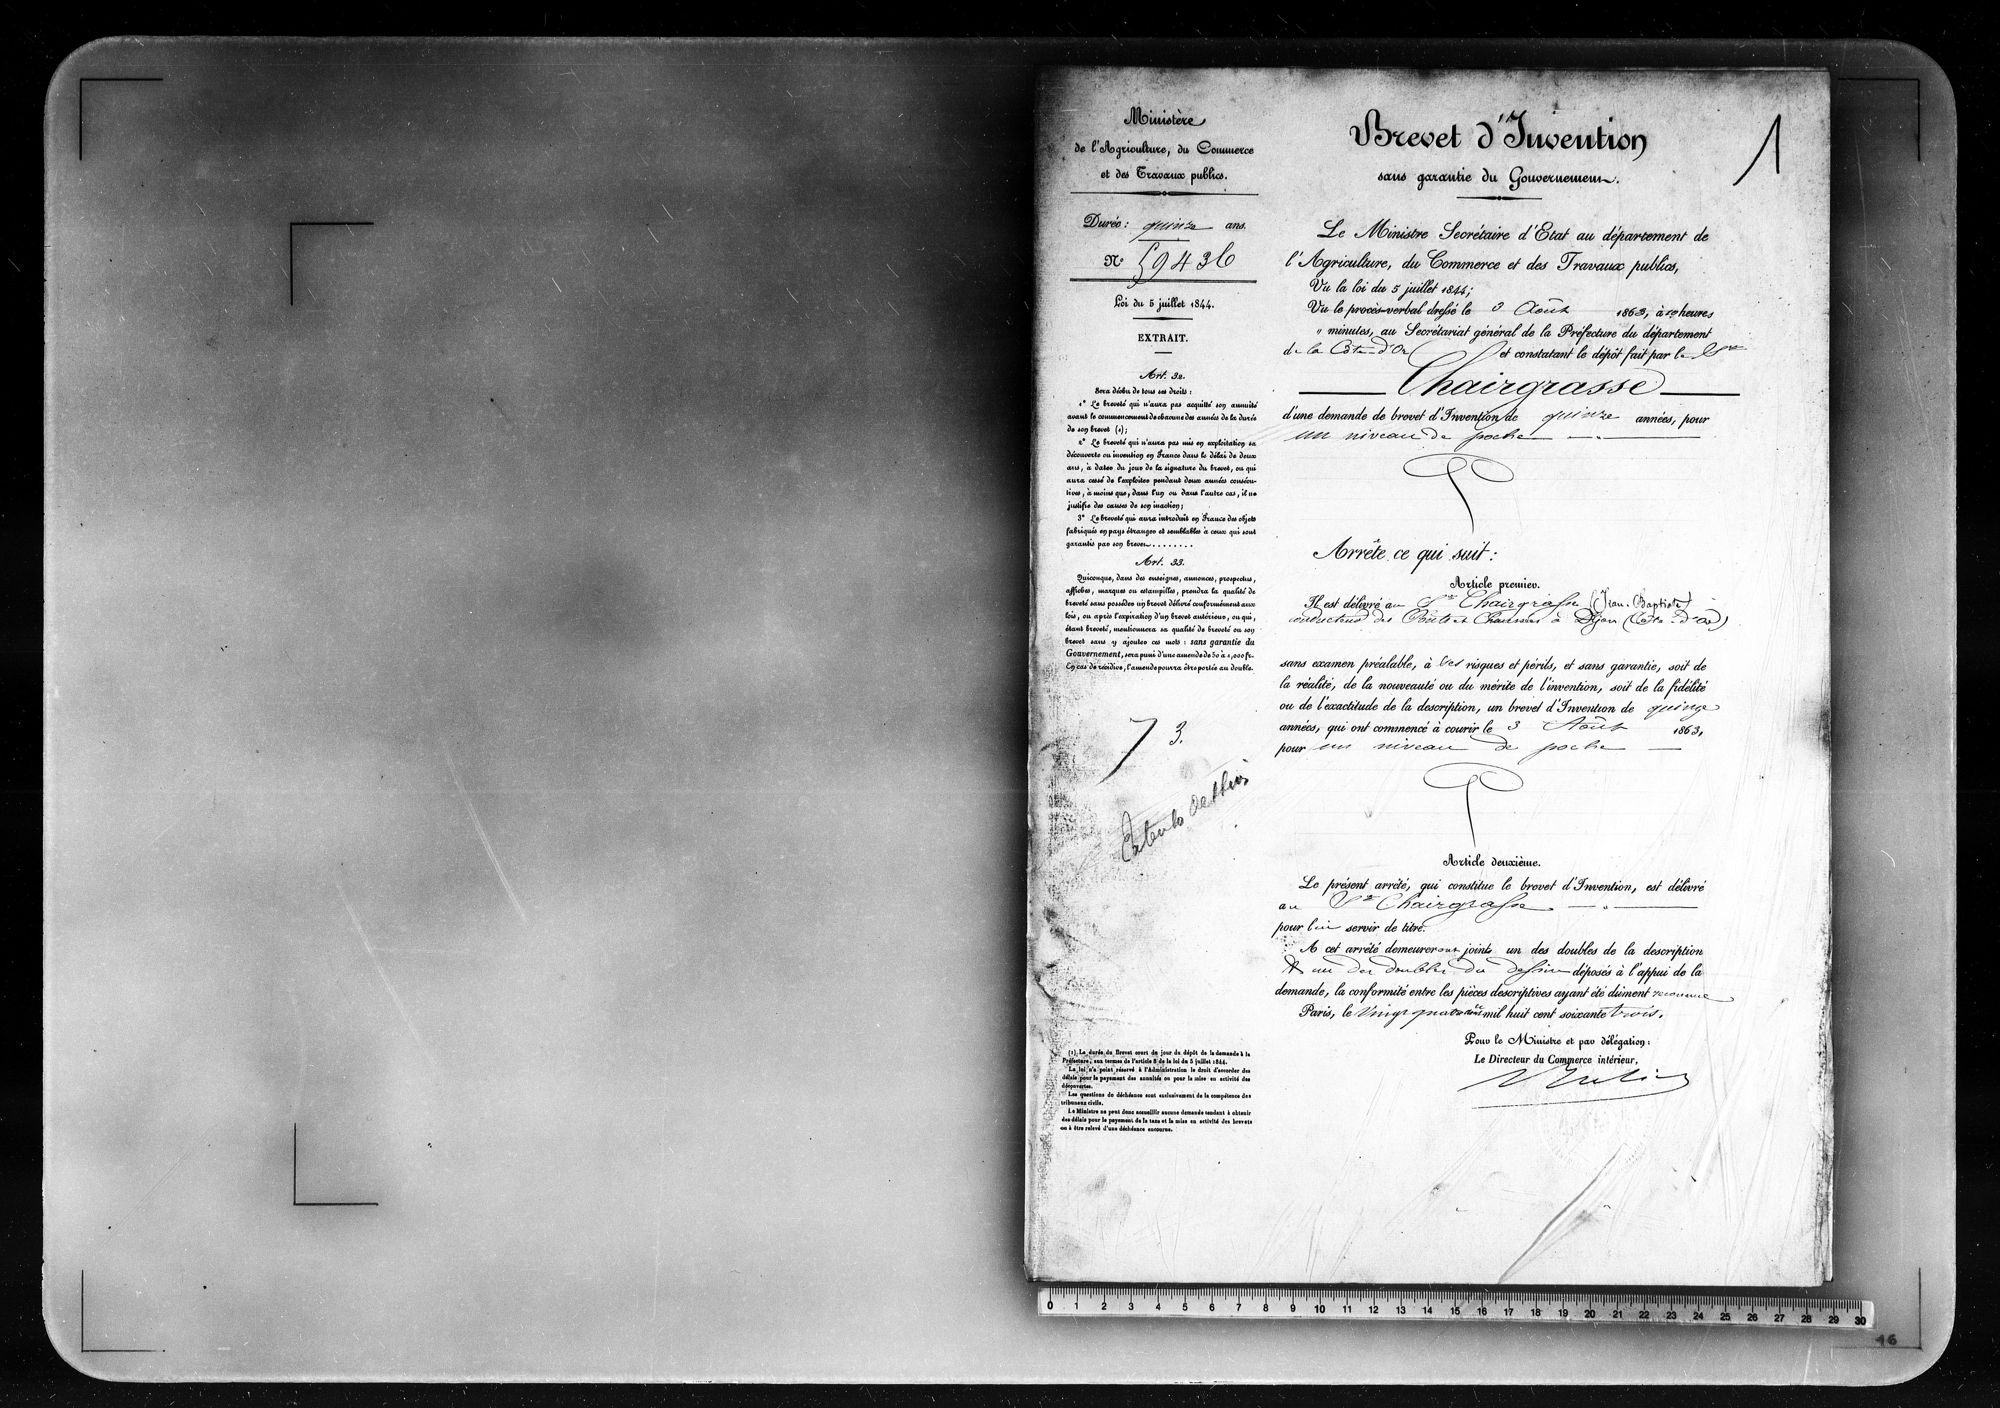 Ministère
de l'Agriculture, du Commerce
et des Travaux publics.
Durée : quinze ans.
N° 59436
Loi du 5 juillet 1844.
EXTRAIT.
Art. 32.
Sera déchu de tous ses droits :
1° Le breveté qui n'aura pas acquitté son annuité
avant le commencement de chacune des années de la durée
de son brevet (1);
2° Le breveté qui n'aura pas mis en exploitation sa
découverte ou invention en France dans le délai de deux
ans, à dater du jour de la signature du brevet, ou qui
aura cessé de l'exploiter pendant deux années consécu-
tives, à moins que, dans l'un ou dans l'autre cas, il ne
justifie des causes de son inaction;
3° Le breveté qui aura introduit en France des objets
fabriqués en pays étranger et semblables à ceux qui sont
garantis par son brevet........
Art. 33.
Quiconque, dans des enseignes, annonces, prospectus,
affiches, marques ou estampilles, prendra la qualité de
breveté sans posséder un brevet délivré conformément aux
lois, ou après l'expiration d'un brevet antérieur, ou qui,
étant breveté, mentionnera sa qualité de breveté ou son
brevet sans y ajouter ces mots : sans garantie du
Gouvernement, sera puni d'une amende de 50 à 1,000 fr.
En cas de récidive, l'amende pourra être portée au double.
3.
(1) La durée du Brevet court du jour du dépôt de la demande à la
Préfecture, aux termes de l'article 8 de la loi du 5 juillet 1844.
La loi n'a point réservé à l'Administration le droit d'accorder des
délais pour le payement des annuités ou pour la mise en activité des
découvertes.
Les questions de déchéance sont exclusivement de la compétence des
tribunaux civils.
Le Ministre ne peut donc accueillir aucune demande tendant à obtenir
des délais pour le payement de la taxe et la mise en activité des brevets
ou à être relevé d'une déchéance encourue.
Brevet d'Invention
sans garantie du Gouvernement.
1
Le Ministre Secrétaire d'Etat au département de
l'Agriculture, du Commerce et des Travaux publics,
Vu la loi du 5 juillet 1844;
Vu le procès-verbal dressé le 3 Août 1863, à 10 heures
" minutes, au Secrétariat général de la Préfecture du département
de la Côte-d'Or et constatant le dépôt fait par le Sr
Chairgrasse
d'une demande de brevet d'Invention de quinze années, pour
un niveau de poche
Arrête ce qui suit :
Article premier.
Il est délivré au Sr Chairgrasse (Jean-Baptiste)
conducteur des Ponts et Chaussées à Dijon (Côte-d'Or)
sans examen préalable, à ses risques et périls, et sans garantie, soit de
la réalité, de la nouveauté ou du mérite de l'invention, soit de la fidélité
ou de l'exactitude de la description, un brevet d'Invention de quinze
années, qui ont commencé à courir le 3 Août 1863,
pour un niveau de poche
Article deuxième.
Le présent arrêté, qui constitue le brevet d'Invention, est délivré
au Sr Chairgrasse
pour lui servir de titre.
A cet arrêté demeureront joints un des doubles de la description
& un des doubles du dessin déposés à l'appui de la
demande, la conformité entre les pièces descriptives ayant été dûment reconnue
Paris, le vingt quatre mil huit cent soixante trois.
Pour le Ministre et par délégation :
Le Directeur du Commerce intérieur,
0 1 2 3 4 5 6 7 8 9 10 11 12 13 14 15 16 17 18 19 20 21 22 23 24 25 26 27 28 29 30
16